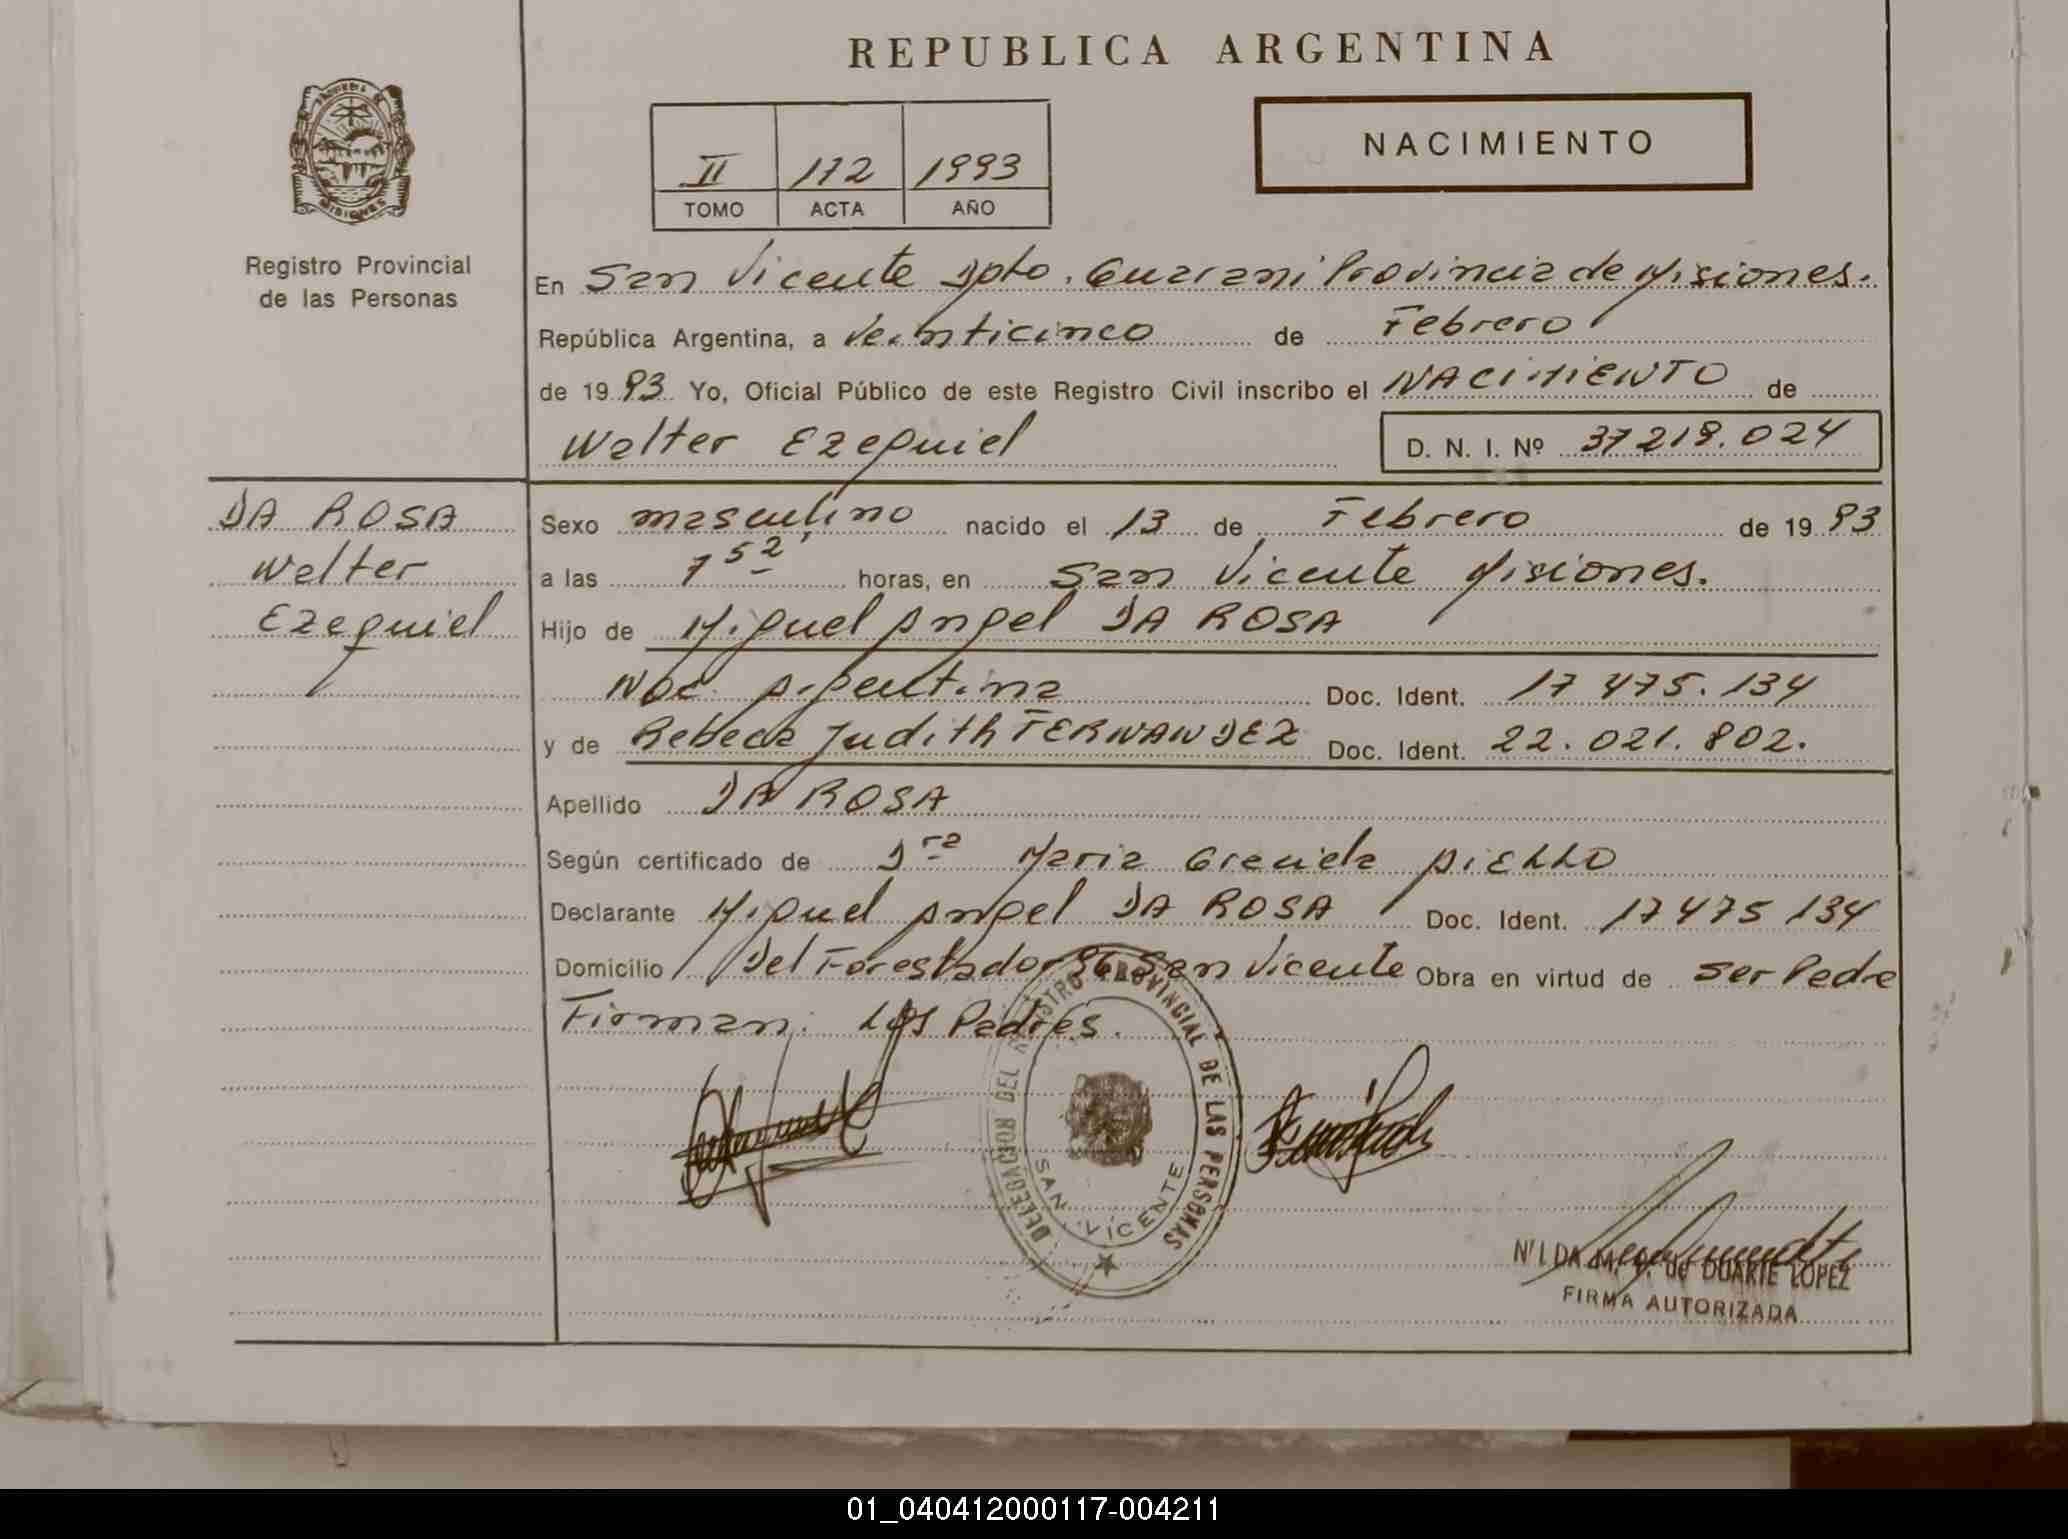 REPUBLICA ARGENTINA
PROVINCIA DE
MISIONES
Registro Provincial
de las Personas
II 172 1993
TOMO ACTA AÑO
NACIMIENTO
En San Vicente Dpto. Guarani Provincia de Misiones.
República Argentina, a veinticinco de Febrero
de 1993 Yo, Oficial Público de este Registro Civil inscribo el NACIMIENTO de
Walter Ezequiel D. N. I. Nº 37219.024
DA ROSA
Walter
Ezequiel
Sexo masculino nacido el 13 de Febrero de 1993
a las 7 52' horas, en San Vicente Misiones.
Hijo de Miguel Angel DA ROSA
Nac. Argentina Doc. Ident. 17 475.134
y de Rebeca Judith FERNANDEZ Doc. Ident. 22.021.802.
Apellido DA ROSA
Según certificado de Dra Maria Graciela AIELLO
Declarante Miguel Angel DA ROSA Doc. Ident. 17475 134
Domicilio Del Forestador San Vicente Obra en virtud de ser Padre
Firman: Los Padres.
DELEGACION DEL REGISTRO PROVINCIAL DE LAS PERSONAS
SAN VICENTE
NILDA DE DUARTE LOPEZ
FIRMA AUTORIZADA
01_040412000117-004211